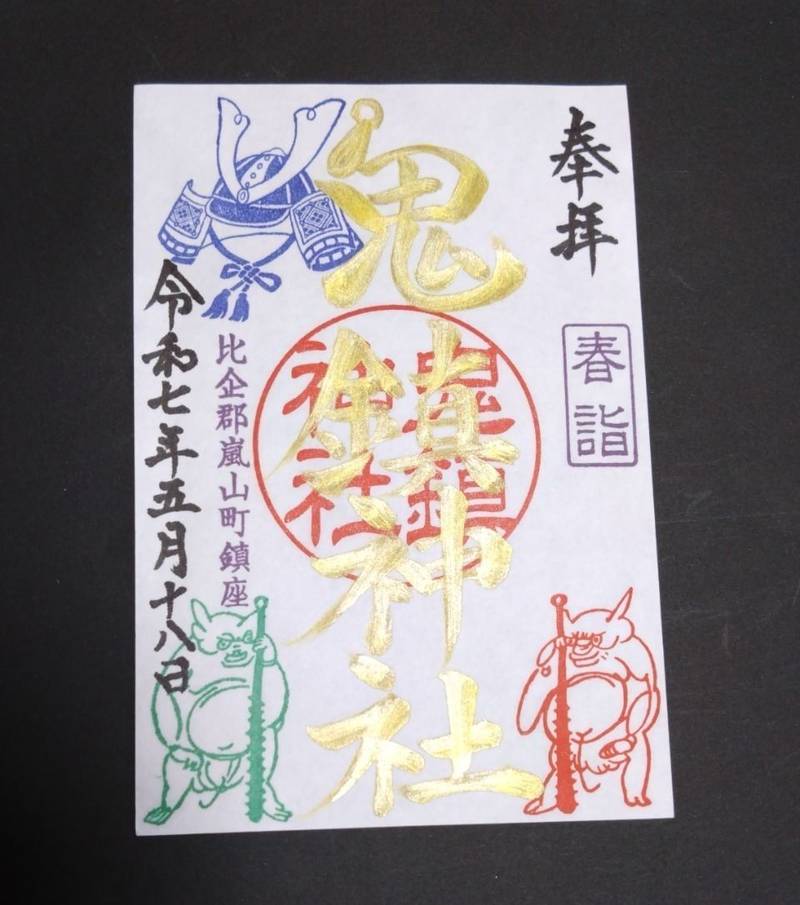 奉拝
春詣
鬼鎮神社
鬼鎮神社
比企郡嵐山町鎮座
令和七年五月十八日